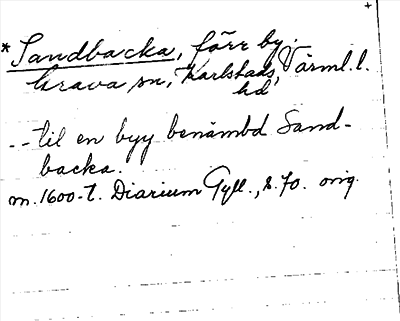 * Sandbacka, förr by.
Grava sn, Karlstads hd, Värml. l.
-- til en byy benämbd Sand-
backa.
m. 1600-t. Diarium Gyll., s. 70. orig.